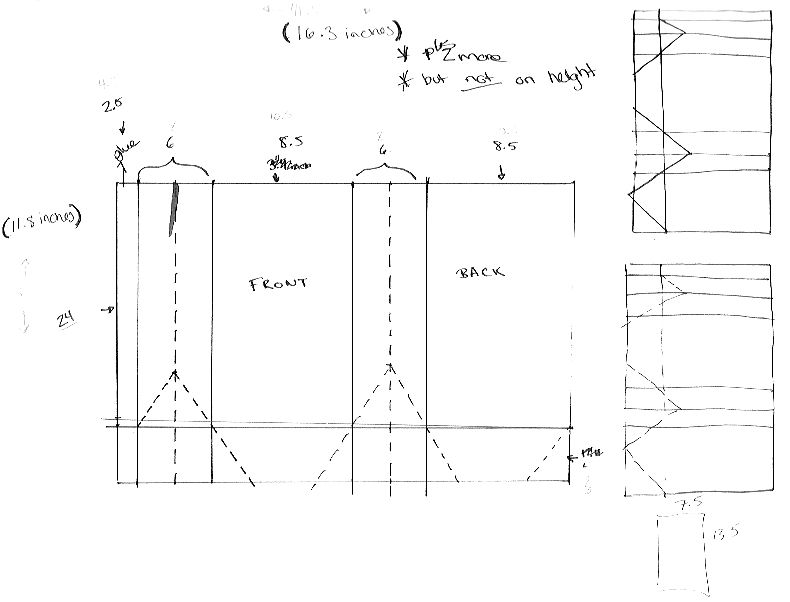 (16.3 inches)
* plus 2 more
* but not on height
2.5
glue
6
8.5
6
8.5
(11.8 inches)
24
FRONT
BACK
7.5
13.5